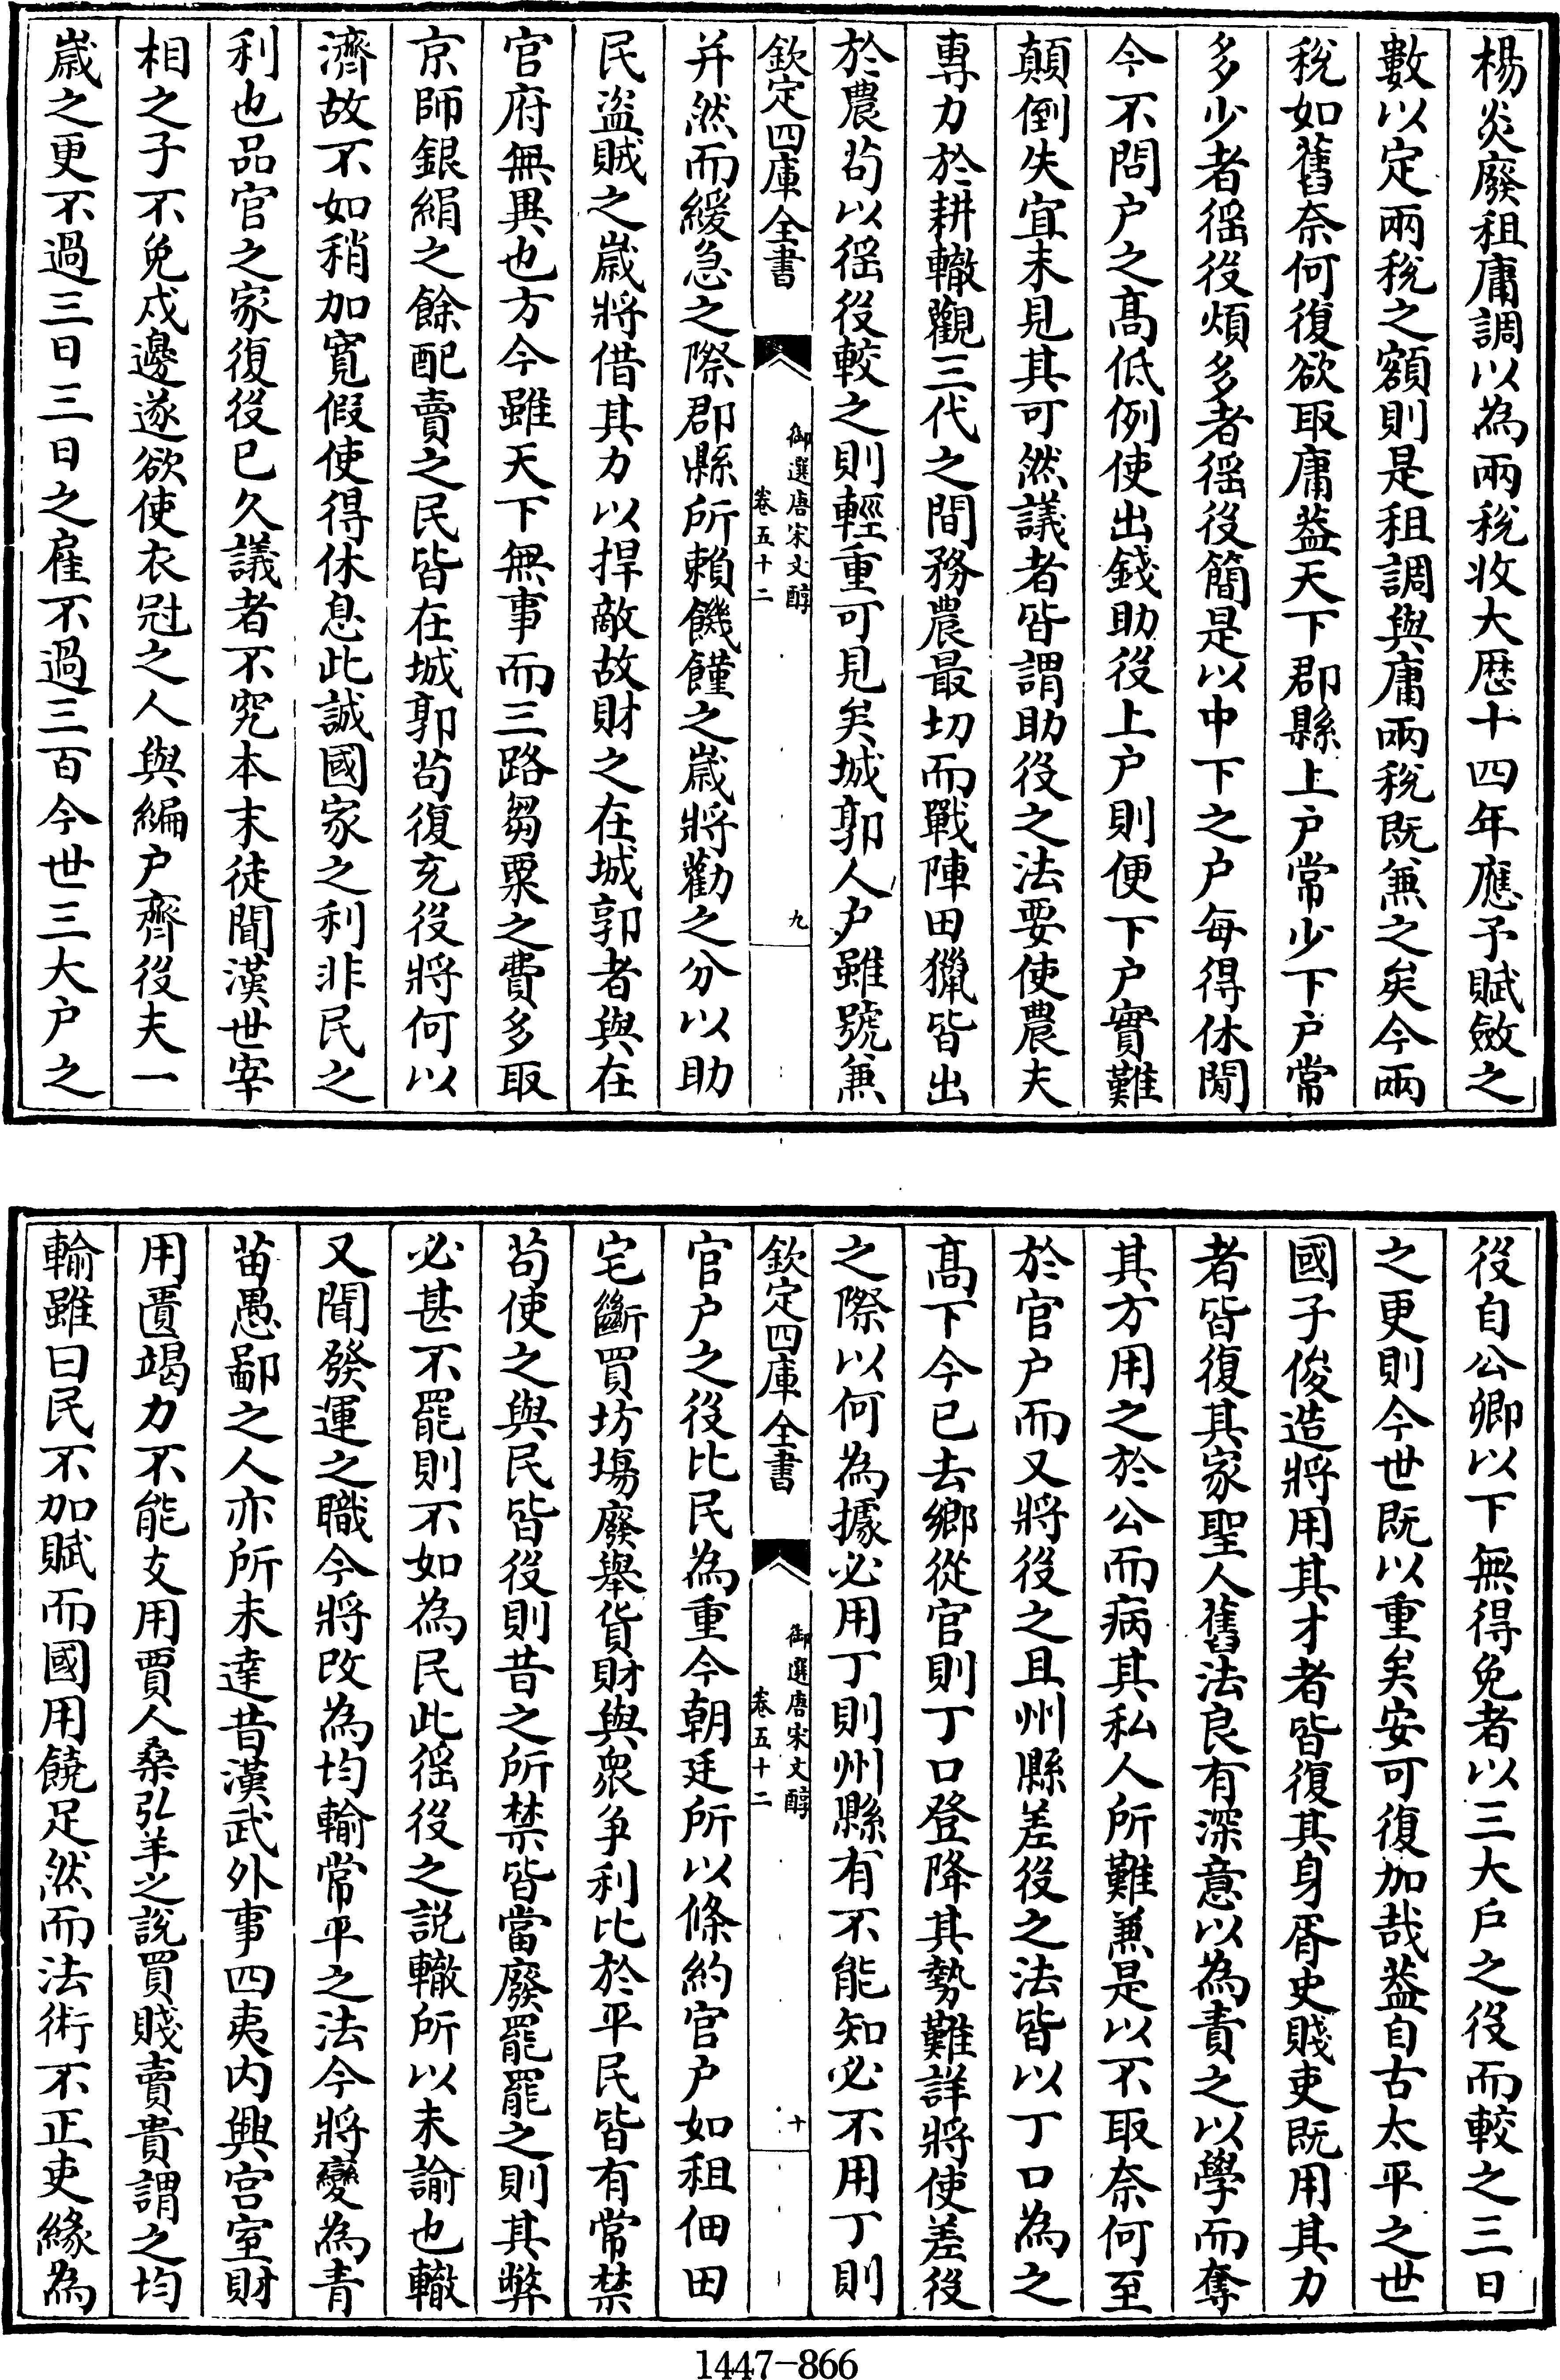 楊炎廢租庸調以為兩税收大厯十四年應予賦斂之
數以定兩税之額則是租調與庸兩税既兼之矣今兩
税如舊奈何復欲取庸蓋天下郡縣上户常少下户常
多少者徭役煩多者徭役簡是以中下之户每得休閒
今不問户之髙低例使出錢助役上户則便下户實難
顛倒失宜未見其可然議者皆謂助役之法要使農夫
專力於耕轍觀三代之間務農最切而戰陣田獵皆出
於農苟以徭役較之則輕重可見矣城郭人户雖號兼
欽定四庫全書
御選唐宋文醇
卷五十二
九
并然而緩急之際郡縣所賴饑饉之嵗將勸之分以助
民盜賊之嵗將借其力以捍敵故財之在城郭者與在
官府無異也方今雖天下無事而三路芻粟之費多取
京師銀絹之餘配賣之民皆在城郭苟復充役將何以
濟故不如稍加寛假使得休息此誠國家之利非民之
利也品官之家復役已久議者不究本末徒聞漢世宰
相之子不免戍邊遂欲使衣冠之人與編户齊役夫一
嵗之更不過三日三日之雇不過三百今世三大户之
役自公卿以下無得免者以三大户之役而較之三日
之更則今世既以重矣安可復加哉蓋自古太平之世
國子俊造將用其才者皆復其身胥史賤吏既用其力
者皆復其家聖人舊法良有深意以為責之以學而奪
其方用之於公而病其私人所難兼是以不取奈何至
於官户而又將役之且州縣差役之法皆以丁口為之
髙下今已去鄉從官則丁口登降其勢難詳將使差役
之際以何為據必用丁則州縣有不能知必不用丁則
欽定四庫全書
御選唐宋文醇
卷五十二
十
官户之役比民為重今朝廷所以條約官户如租佃田
宅斷買坊場廢舉貨財與衆爭利比於平民皆有常禁
苟使之與民皆役則昔之所禁皆當廢罷罷之則其弊
必甚不罷則不如為民此徭役之説轍所以未諭也轍
又聞發運之職今將改為均輸常平之法今將變為青
苗愚鄙之人亦所未達昔漢武外事四夷内興宫室財
用匱竭力不能支用賈人桑弘羊之說買賤賣貴謂之均
輸雖曰民不加賦而國用饒足然而法術不正吏緣為
1447-866